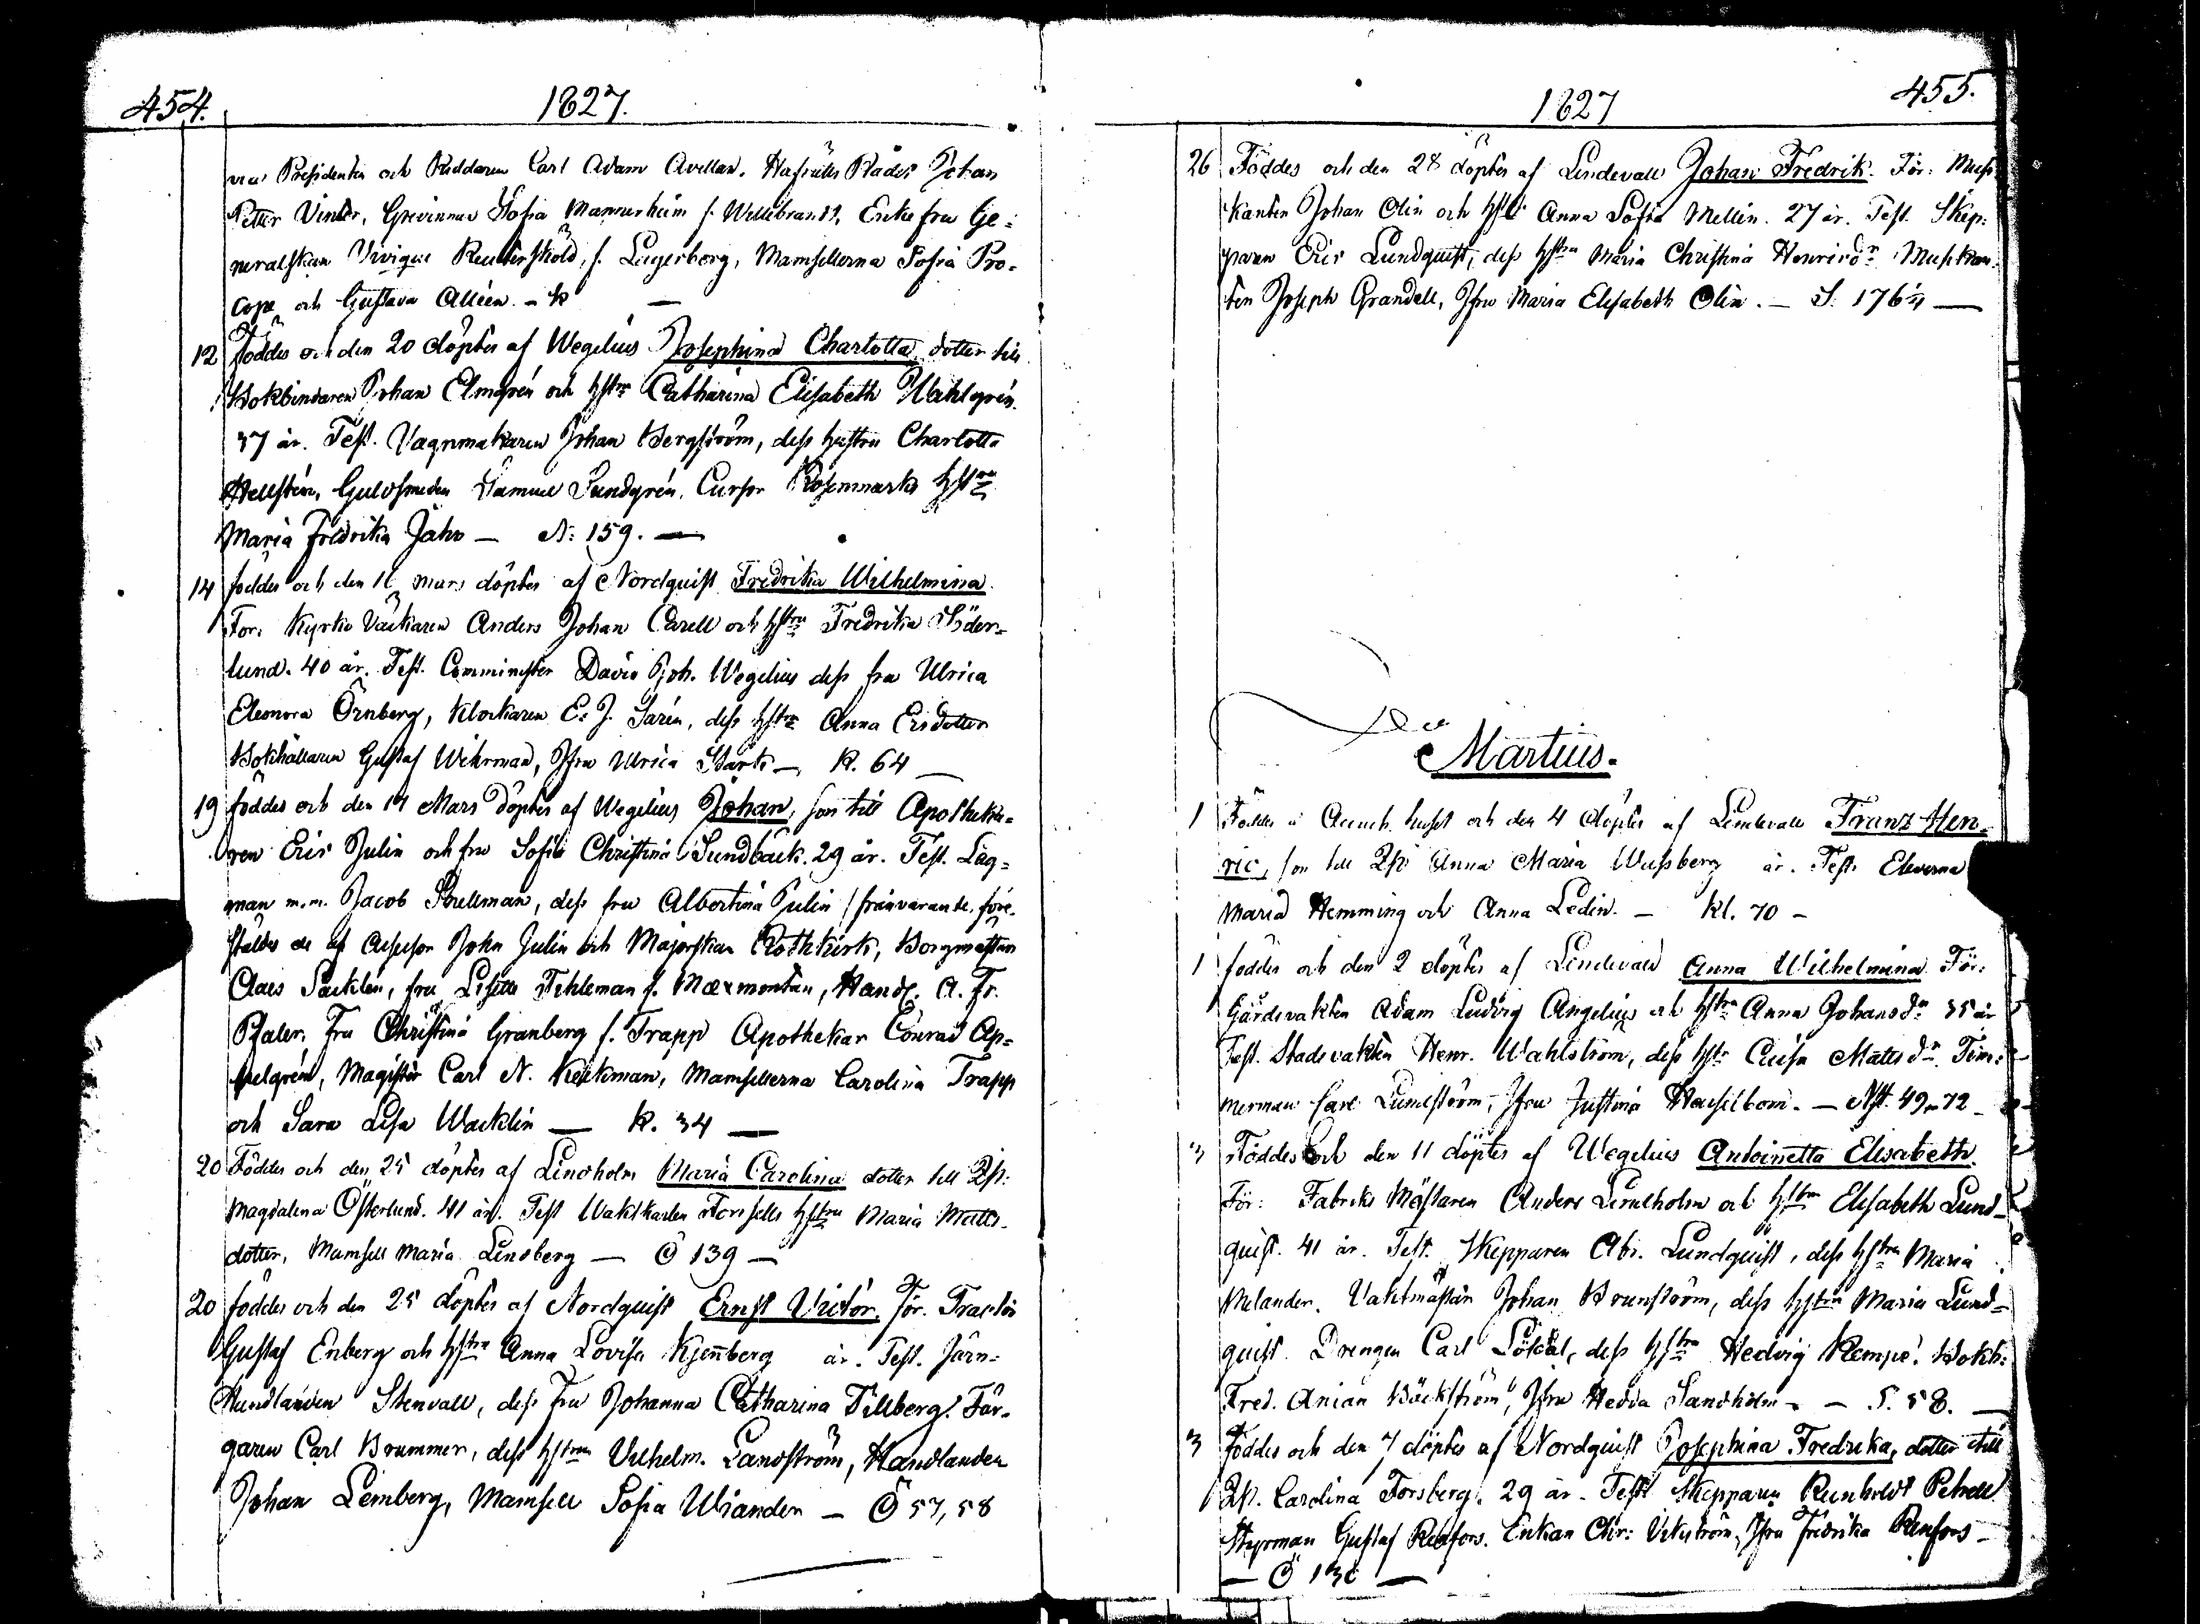 454.
1827.
Presidenten och Riddaren Carl Adam Avellan. Hofrätts Rådet Johan
Petter Vinter, Grevinnan Sofia Mannerheim f. Willebrandt, Enke fru Ge-
neralskan Vivique Reuterskiöld, f. Lagerborg, Mamsellerna Sofia Pro-
cope och Gustava Alléen. - K —
12 föddes och den 20 döptes af Wegelius Josephina Charlotta, dotter till
Bokbindaren Johan Elmgrén och hstru Catharina Elisabeth Wahlgrén.
37 år. Test. Vagnmakaren Johan Bergström, dess hustru Charlotta
Hellstén, Guldsmeden Samuel Sundgrén, Cursor Rosenmarks hstru
Maria Fredrika Jahn — N: 159. —
14 föddes och den 16 mars döptes af Nordquist Fredrika Wilhelmina.
För. Kyrko Väktaren Anders Johan Carell och hstru Fredrika Söder-
lund. 40 år. Test. Comminister David Joh. Wegelius dess fru Ulrica
Eleonora Örnberg, Klockaren E. J. Sarén, dess hstru Anna Ersdotter
Bokhållaren Gustaf Wehrman, Jfru Ulrica Starck — K. 64 —
19 föddes och den 14 Mars döptes af Wegelius Johan, son till Apotheka-
ren Eric Julin och fru Sofia Christina Sundbäck. 29 år. Test. Lag-
man m.m. Jacob Snellman, dess fru Albertina Julin / frånvarande, före-
ställdes de af Assessor John Julin och Majorskan Rothkirk, Borgmästaren
Claes Sacklén, fru Lisette Fehleman f. Maxmontan, Handl. A. Fr.
Pfaler, Fru Christina Granberg f. Trapp Apothekar Conrad Ap-
pelgrén, Magister Carl N. Keckman, Mamsellerna Carolina Trapp
och Sara Lisa Wacklin — K. 34 —
20 Föddes och den 25 döptes af Lindholm Maria Carolina dotter till Qp:
Magdalena Österlund. 41 år. Test Waktkarlen Forssells hstru Maria Matts-
dotter, Mamsell Maria Lindberg — Ö 139 —
20 föddes och den 25 döptes af Nordquist Ernst Victor. För. Tractör
Gustaf Enberg och hstru Anna Lovisa Kjenberg år. Test. Järn-
Handlanden Stenvall, dess Fru Johanna Catharina Tillberg. Fär-
garen Carl Brummer, dess hstru Vilhelm. Landström, Handlanden
Johan Leinberg, Mamsell Sofia Uliander — Ö 57, 58
1827
455.
26 Föddes och den 28 döptes af Lindevall Johan Fredrik. För: Musi-
kanten Johan Olin och hstr Anna Sofia Mellin. 27 år. Test. Skep-
paren Eric Lundquist, dess hstru Maria Christina Henricsdr Musikan-
ten Joseph Grandell, Jfru Maria Elisabeth Olin. — S: 176½ —
Martius.
1 Föddes å Accouch. huset och den 4 döptes af Lindevall Franz Hen-
ric, son till Qp: Anna Maria Wessberg år. Test. Eleverna
Maria Hemming och Anna Ledin. — Kl. 70 —
1 föddes och den 2 döptes af Lindevall Anna Wilhelmina För:
Gårdsvakten Adam Ludvig Angelius och hstru Anna Johansdr 35 år
Test. Stadsvakten Henr. Wahlström, dess hstr Caisa Mattsdr. Tim-
merman Carl Lundström, Jfru Justina Hasselbom. — Nst. 49 72 —
3 Föddes och den 11 döptes af Wegelius Antoinetta Elisabeth
För: Fabriks Mästaren Anders Lindholm och hstru Elisabeth Lund-
quist. 41 år. Test. Skepparen Abr. Lundquist, dess hstru Maria
Melander. Vaktmästar Johan Brunström, dess hstru Maria Lund-
quist. Drengen Carl Löfdal, dess hstru Hedvig Kempe. Bokh:
Fred. Anian Bäckström, Jfru Hedda Sandholm — — S. 58. —
3 föddes och den 7 döptes af Nordquist Josephina Fredrika, dotter till
Qp. Carolina Forsberg. 29 år. Test Skepparen Renholdt Petrell
Styrman Gustaf Renfors. Enkan Chr: Vikström, Jfru Fredrika Renfors —
— Ö 136 —